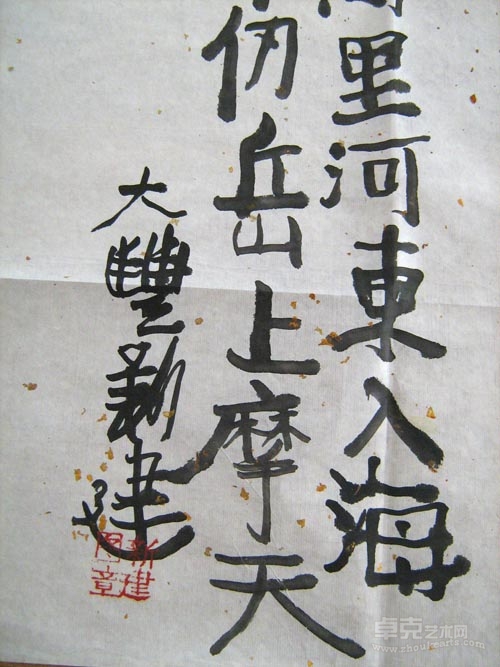 里河東入海
仞岳上摩天
大豐新建
新建
图章
卓克艺术网
www.zhuokearts.com